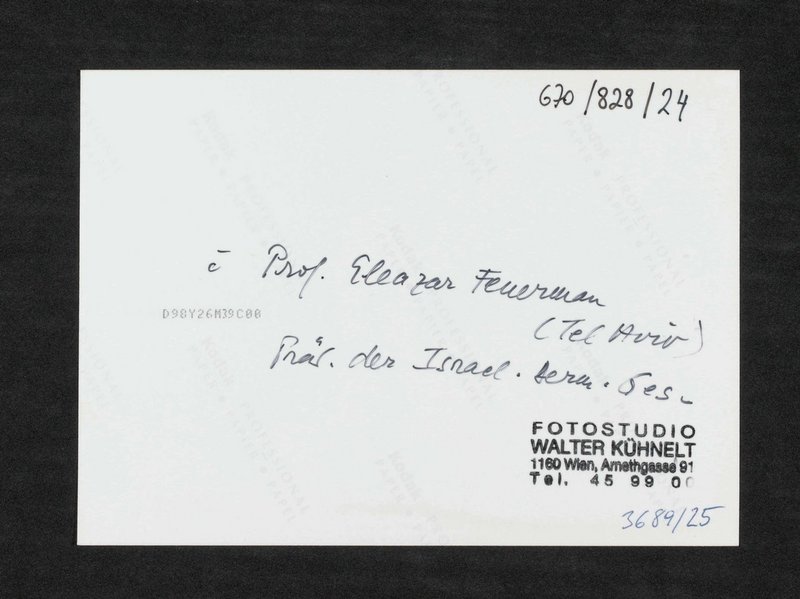 670/828/24
c̄ Prof. Eleazar Feuerman
(Tel Aviv)
D98Y26M39C00
Präs. der Israel. Derm. Ges.
FOTOSTUDIO
WALTER KÜHNELT
1160 Wien, Arnethgasse 91
Tel. 45 99 00
3689/25
Kodak PROFESSIONAL
PAPER & PAPEL